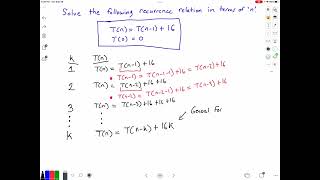 Solve the following recurrence relation in terms of 'n'
T(n) = T(n-1) + 16
T(0) = 0
k T(n)
1 T(n) = T(n-1) + 16
T(n-1) = T(n-1-1) + 16 = T(n-2) + 16
2 T(n) = T(n-2) + 16 + 16
T(n-2) = T(n-2-1) + 16 = T(n-3) + 16
3 T(n) = T(n-3) + 16 + 16 + 16
⋮ ⋮
k T(n) = T(n-k) + 16k
General For